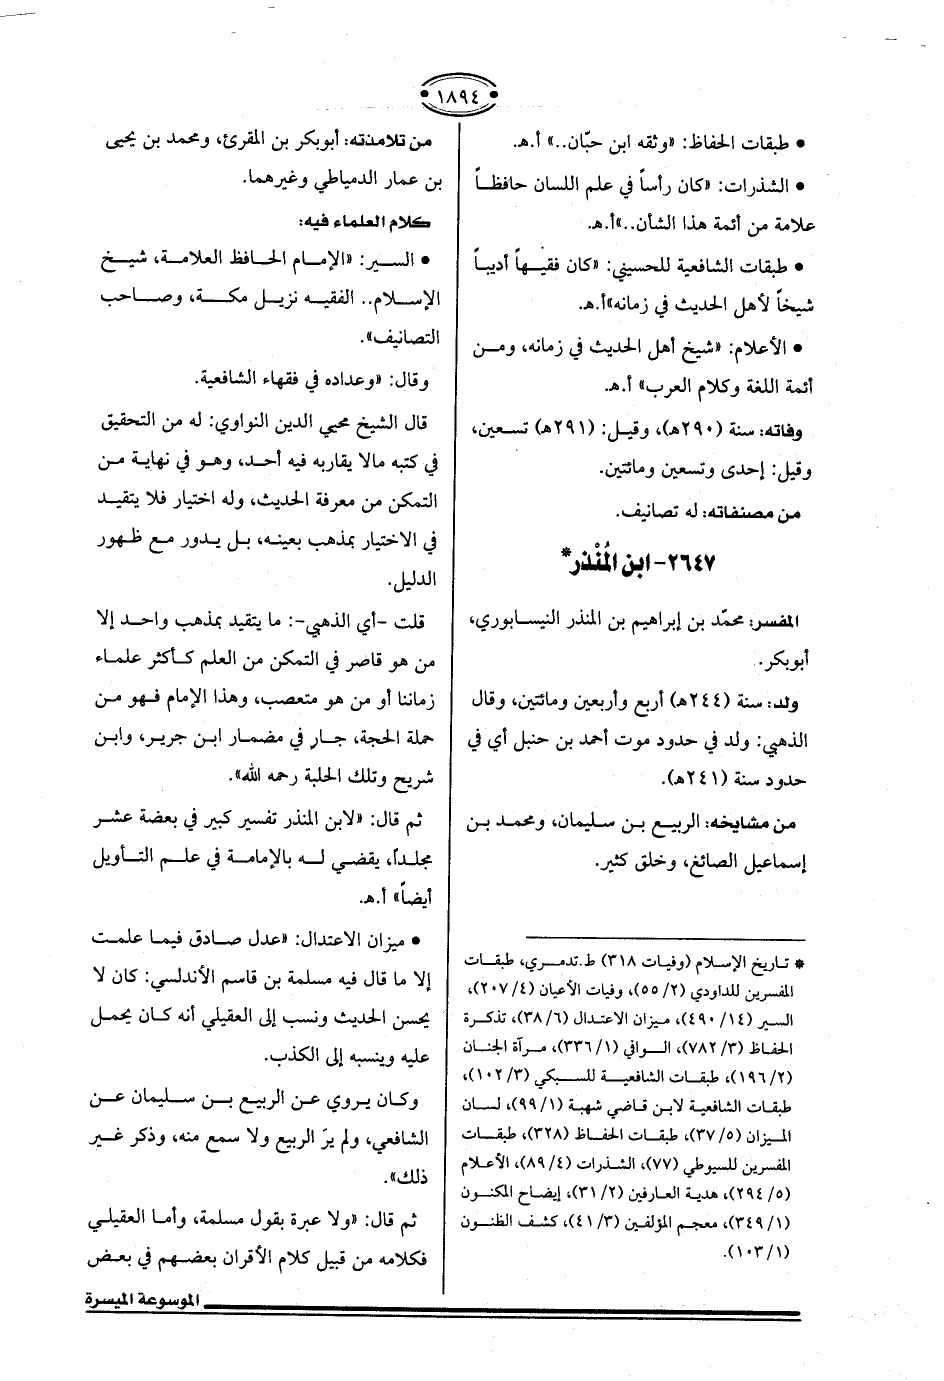 ١٨٩٤
• طبقات الحفاظ: «وثقه ابن حبّان..» أ.هـ.
• الشذرات: «كان رأساً في علم اللسان حافظاً
علامة من أئمة هذا الشأن..»أ.هـ.
• طبقات الشافعية للحسيني: «كان فقيهاً أديباً
شيخاً لأهل الحديث في زمانه»أ.هـ.
• الأعلام: «شيخ أهل الحديث في زمانه، ومن
أئمة اللغة وكلام العرب» أ.هـ.
وفاته: سنة (٢٩٠هـ)، وقيل: (٢٩١هـ) تسعين،
وقيل: إحدى وتسعين ومائتين.
من مصنفاته: له تصانيف.
٢٦٤٧- ابن المُنْذر*
المفسر: محمّد بن إبراهيم بن المنذر النيسابوري،
أبوبكر.
ولد: سنة (٢٤٤هـ) أربع وأربعين ومائتين، وقال
الذهبي: ولد في حدود موت أحمد بن حنبل أي في
حدود سنة (٢٤١هـ).
من مشايخه: الربيع بن سليمان، ومحمد بن
إسماعيل الصائغ، وخلق كثير.
* تاريخ الإسلام (وفيات ٣١٨) ط.تدمري، طبقات
المفسرين للداودي (٢/ ٥٥)، وفيات الأعيان (٤/ ٢٠٧)،
السير (١٤/ ٤٩٠)، ميزان الاعتدال (٦/ ٣٨)، تذكرة
الحفاظ (٣/ ٧٨٢)، الوافي (١/ ٣٣٦)، مرآة الجنان
(٢/ ١٩٦)، طبقات الشافعية للسبكي (٣/ ١٠٢)،
طبقات الشافعية لابن قاضي شهبة (١/ ٩٩)، لسان
الميزان (٥/ ٣٧)، طبقات الحفاظ (٣٢٨)، طبقات
المفسرين للسيوطي (٧٧)، الشذرات (٤/ ٨٩)، الأعلام
(٥/ ٢٩٤)، هدية العارفين (٢/ ٣١)، إيضاح المكنون
(١/ ٣٤٩)، معجم المؤلفين (٣/ ٤١)، كشف الظنون
(١/ ١٠٣).
من تلامذته: أبوبكر بن المقرئ، ومحمد بن يحيى
بن عمار الدمياطي وغيرهما.
كلام العلماء فيه:
• السير: «الإمام الحافظ العلامة، شيخ
الإسلام.. الفقيه نزيل مكة، وصاحب
التصانيف».
وقال: «وعداده في فقهاء الشافعية.
قال الشيخ محيي الدين النواوي: له من التحقيق
في كتبه مالا يقاربه فيه أحد، وهو في نهاية من
التمكن من معرفة الحديث، وله اختيار فلا يتقيد
في الاختيار بمذهب بعينه، بل يدور مع ظهور
الدليل.
قلت -أي الذهبي-: ما يتقيد بمذهب واحد إلا
من هو قاصر في التمكن من العلم كأكثر علماء
زماننا أو من هو متعصب، وهذا الإمام فهو من
حملة الحجة، جار في مضمار ابن جرير، وابن
شريح وتلك الحلبة رحمه الله».
ثم قال: «لابن المنذر تفسير كبير في بضعة عشر
مجلداً، يقضي له بالإمامة في علم التأويل
أيضاً» أ.هـ.
• ميزان الاعتدال: «عدل صادق فيما علمت
إلا ما قال فيه مسلمة بن قاسم الأندلسي: كان لا
يحسن الحديث ونسب إلى العقيلي أنه كان يحمل
عليه وينسبه إلى الكذب.
وكان يروي عن الربيع بن سليمان عن
الشافعي، ولم يرَ الربيع ولا سمع منه، وذكر غير
ذلك».
ثم قال: «ولا عبرة بقول مسلمة، وأما العقيلي
فكلامه من قبيل كلام الأقران بعضهم في بعض
الموسوعة الميسرة